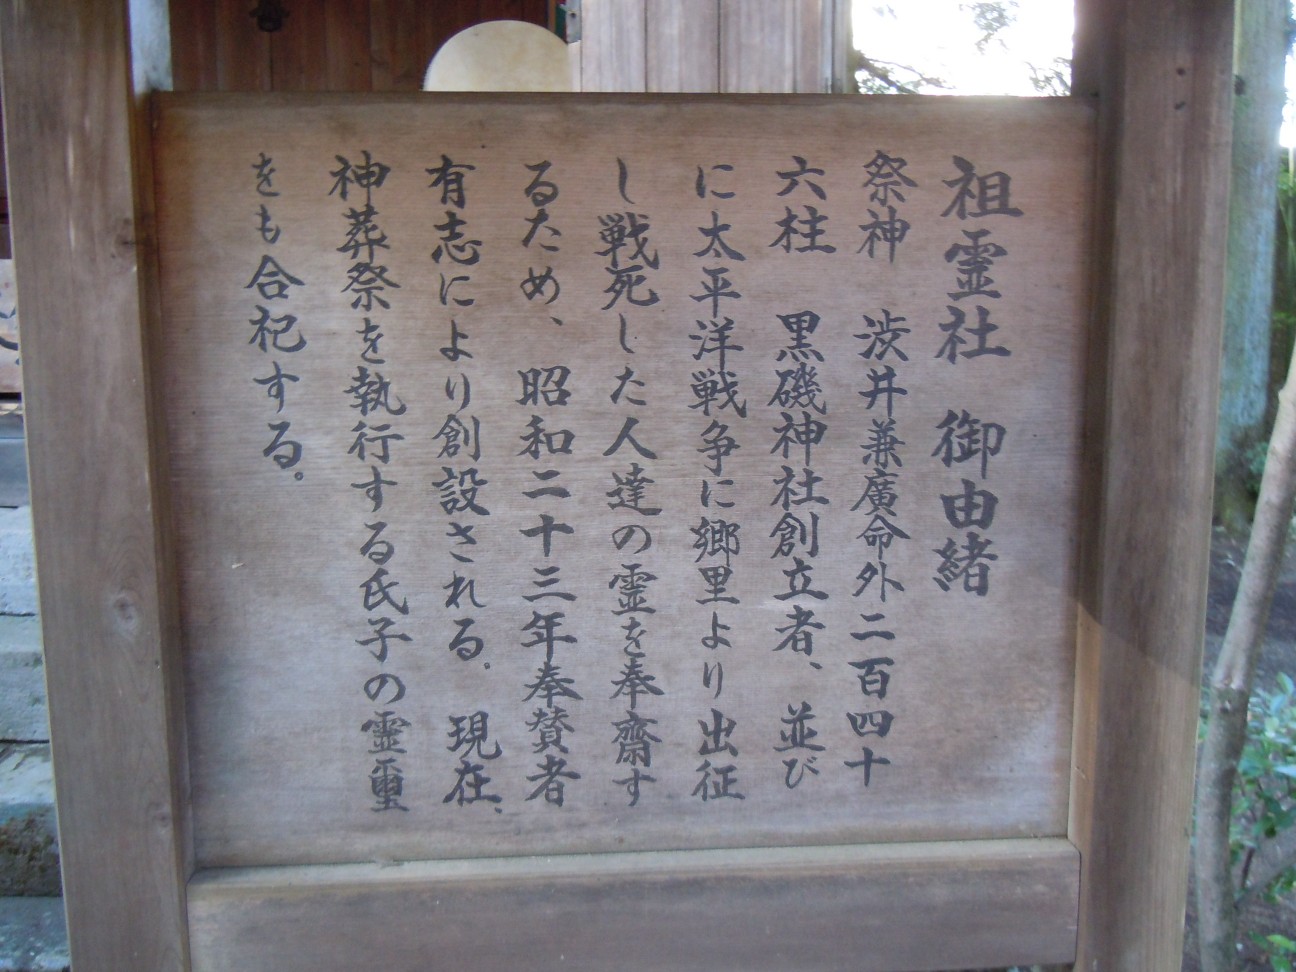 祖霊社　御由緒
祭神　渋井兼廣命外二百四十
六柱　黒磯神社創立者、並び
に太平洋戦争に郷里より出征
し戦死した人達の霊を奉齋す
るため、昭和二十三年奉賛者
有志により創設される。現在、
神葬祭を執行する氏子の霊璽
をも合祀する。